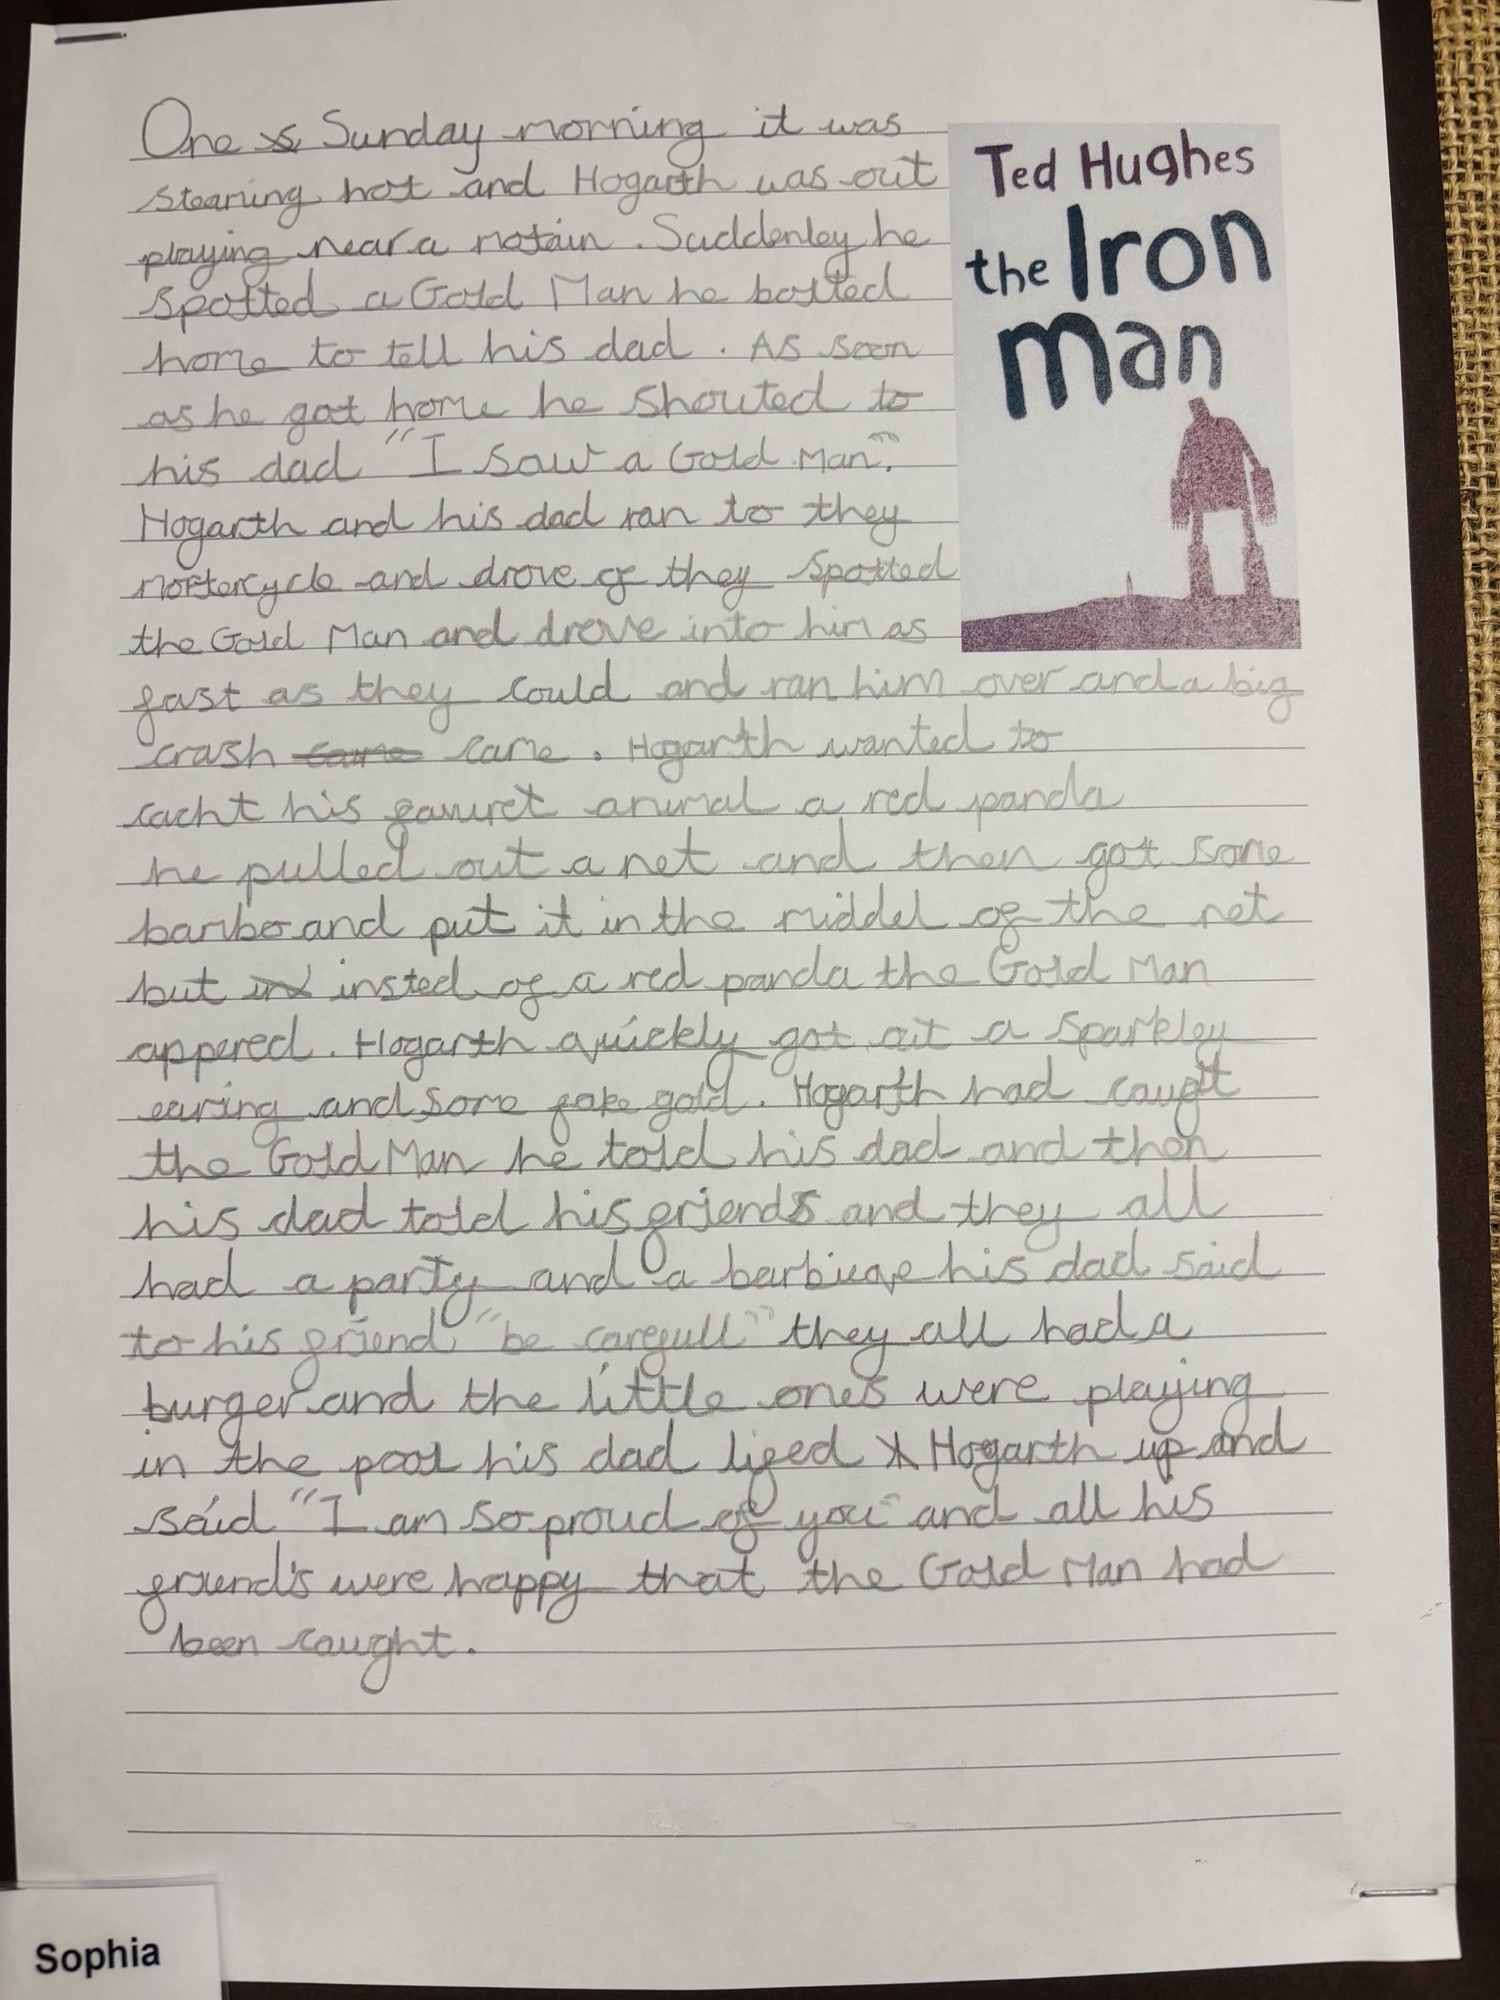 One Sunday morning it was
steaming hot and Hogarth was out
playing near a motain. Suddenley he
spotted a Gold Man he bolted
home to tell his dad. As soon
as he got home he shouted to
his dad "I saw a Gold Man".
Hogarth and his dad ran to they
mortercycle and drove of they spotted
the Gold Man and drove into him as
fast as they could and ran him over and a big
crash came came. Hogarth wanted to
cacht his favuret animal a red panda
he pulled out a net and then got some
bambo and put it in the middel of the net
but insted of a red panda the Gold Man
appered. Hogarth quickly got out a sparkley
earing and some fake gold. Hogarth had caught
the Gold Man he told his dad and then
his dad told his friends and they all
had a party and a barbiuqe his dad said
to his friend "be carefull" they all had a
burger and the little ones were playing
in the pool his dad lifed Hogarth up and
said "I am so proud of you" and all his
friends were happy that the Gold Man had
been caught.
Ted Hughes
the Iron
man
Sophia